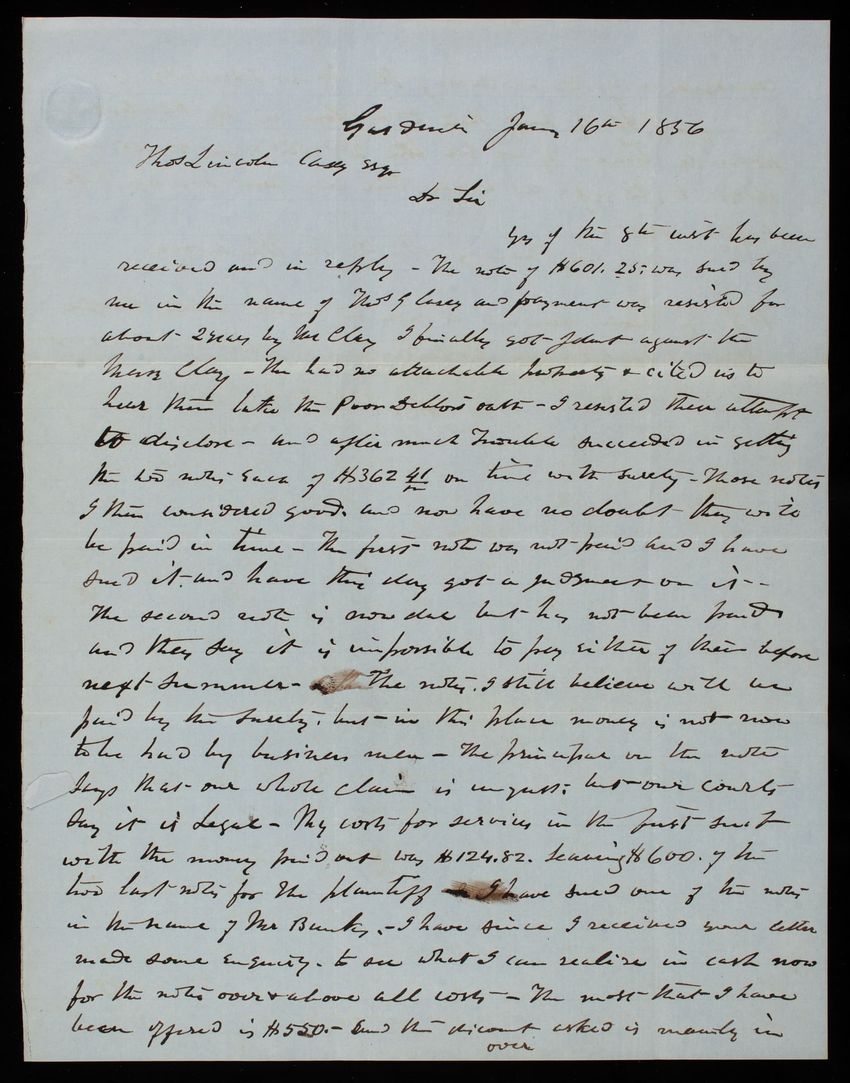 Gardiner Jany 16th 1856
Thos Lincoln Casey Esqr
Dr Sir
Yrs of the 8th inst has been
received and in reply - The note of $601.25. was sued by
me in the name of Thos G Casey and payment was resisted for
about 2 years by Mr Clay I finally got Jdmt against the
Messrs Clay - The had no attachable property & cited us to
hear them take the Poor Debtors oath - I resisted their attempt
to disclose - and after much trouble succeeded in getting
the two notes each of $362 41 on time with surety - Those notes
I then considered good. and now have no doubt they will
be paid in time - The first note was not paid and I have
sued it. and have this day got a judgment on it --
The second note is now due but has not been paid
and they say it is impossible to pay either of them before
next summer - The notes. I still believe will be
paid by the surety. but in this place money is not now
to be had by business men - The principal on the note
says that our whole claim is unjust; but our courts
say it is Legal - My costs for services in the first suit
with the money paid out was $124.82. leaving $600. of the
two last notes for the plaintiff I have sued one of the notes
in the name of Mr Banks. - I have since I received your letter
made some enquiry. to see what I can realize in cash now
for the notes over & above all costs - The most that I have
been offered is $550. - and the discount asked is mainly in
over